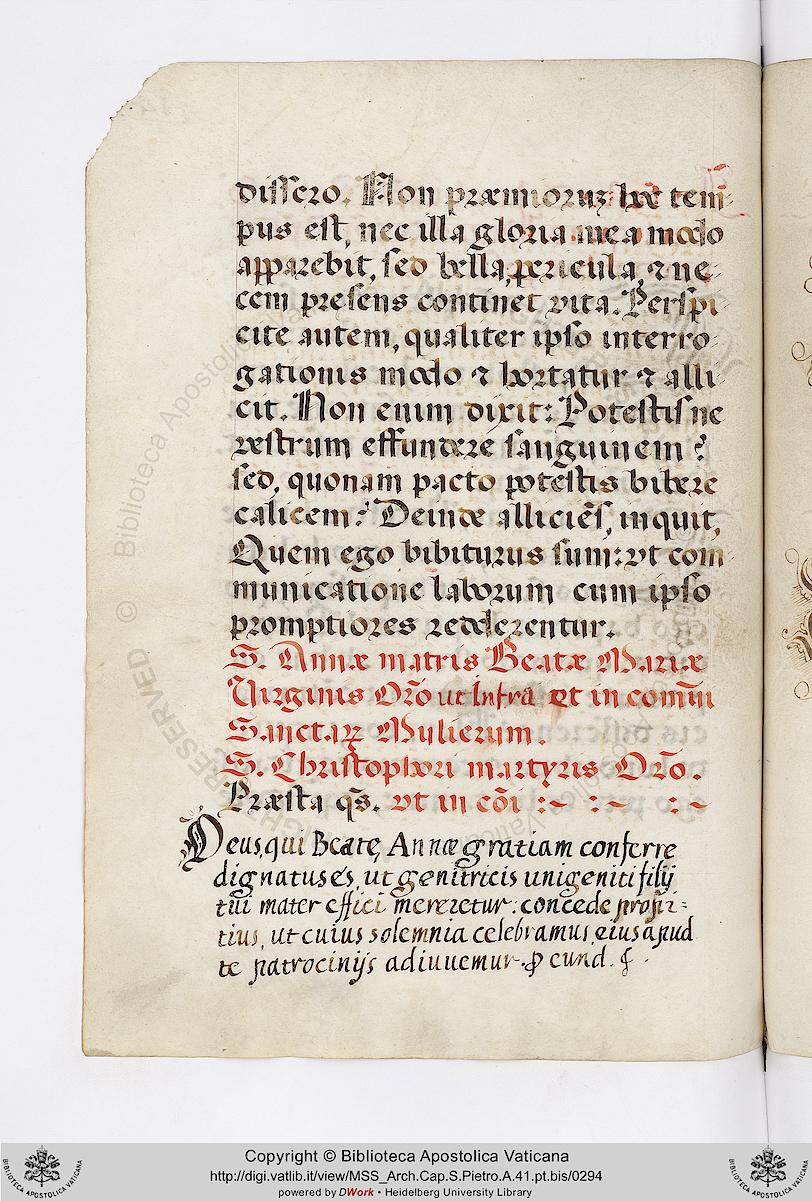 dissero. Non præmiorum hoc tem-
pus est, nec illa gloria mea modo
apparebit, sed bella, pericula, ⁊ ne-
cem presens continet vita. Perspi
cite autem, qualiter ipso interro-
gationis modo ⁊ hortatur ⁊ alli-
cit. Non enim dixit: Potestis ne
vestrum effundere sanguinem?
sed, quonam pacto potestis bibere
calicem? Deinde alliciẽs, inquit,
Quem ego bibiturus sum: vt com-
municatione laborum cum ipso
promptiores redderentur.
S. Annæ matris Beatæ Mariæ
Virginis Orõ ut Infra et in commũi
Sanctaꝝ Mulierum.
S. Christophori martyris Orõ.
Præsta qs̃. vt in cõi :~ :~ :~
Deus, qui Beatę Annæ gratiam conferre
dignatus es, ut genitricis unigeniti filij
tui mater effici mereretur: concede propi-
tius, ut cuius solemnia celebramus, eius apud
te patrocinijs adiuuemur. ꝑ eund.
BIBLIOTECA APOSTOLICA VATICANA
Copyright © Biblioteca Apostolica Vaticana
http://digi.vatlib.it/view/MSS_Arch.Cap.S.Pietro.A.41.pt.bis/0294
powered by DWork • Heidelberg University Library
BIBLIOTECA APOSTOLICA VATICANA